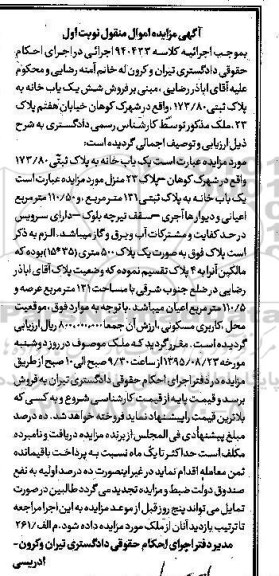 آگهی مزایده اموال منقول نوبت اول
بموجب اجرائیه کلاسه ۹۴۰۴۳۳ اجرائی در اجرای احکام
حقوقی دادگستری تیران و کرون له خانم آمنه رضایی و محکوم
علیه آقای اباذر رضایی، مبنی بر فروش شش یک باب خانه به
پلاک ثبتی ۱۷۳/۸۰، واقع در شهرک کوهان خیابان هفتم پلاک
۲۳، ملک مذکور توسط کارشناس رسمی دادگستری به شرح
ذیل ارزیابی و توصیف اجمالی گردیده است:
مورد مزایده عبارت است یک باب خانه به پلاک ثبتی ۱۷۳/۸۰
واقع در شهرک کوهان – پلاک ۲۳ منزل مورد مزایده عبارت است
یک باب خانه به پلاک ثبتی ۱۳۱ متر مربع، و ۱۱۰/۵۰ متر مربع
اعیانی و دیوارها آجری – سقف تیرچه بلوک – دارای سرویس
در حد کفایت و مشترکات آب و برق و گاز میباشد. الزم به ذکر
است پلاک فوق به صورت یک پلاک ۵۰۰ متری (۳۵*۱۵) بوده که
مالکین آنرا به ۴ پلاک تقسیم نموده که وضعیت پلاک آقای اباذر
رضایی در ضلع جنوب شرقی با مساحت ۱۳۱ متر مربع عرصه و
۱۱۰/۵ متر مربع اعیان میباشد. با توجه به موارد فوق، موقعیت
محل، کاربری مسکونی، ارزش آن جمعا ۸۰۰،۰۰۰،۰۰۰ ریال ارزیابی
گردیده است. مقرر گردید که ملک موصوف در روز دوشنبه
مورخه ۱۳۹۵/۰۸/۲۳ از ساعت ۹/۳۰ صبح الی ۱۰ صبح از طریق
مزایده در دفتر اجرای احکام حقوقی دادگستری تیران به فروش
برسد و قیمت پایه از قیمت کارشناسی شروع و به کسی که
بالاترین قیمت را پیشنهاد نماید فروخته خواهد شد. ده درصد
مبلغ پیشنهادی فی المجلس از برنده مزایده دریافت و نامبرده
مکلف است حداکثر تا یک ماه نسبت به پرداخت باقیمانده
ثمن معامله اقدام نماید در غیر اینصورت ده درصد اولیه به نفع
صندوق دولت ضبط و مزایده تجدید می گردد طالبین در صورت
تمایل می تواند پنج روز قبل از موعد مزایده به این اجرا مراجعه
تا ترتیب بازدید آنان از ملک مورد مزایده داده شود. م الف/۲۶۱
مدیر دفتر اجرای احکام حقوقی دادگستری تیران و کرون-
ادریسی